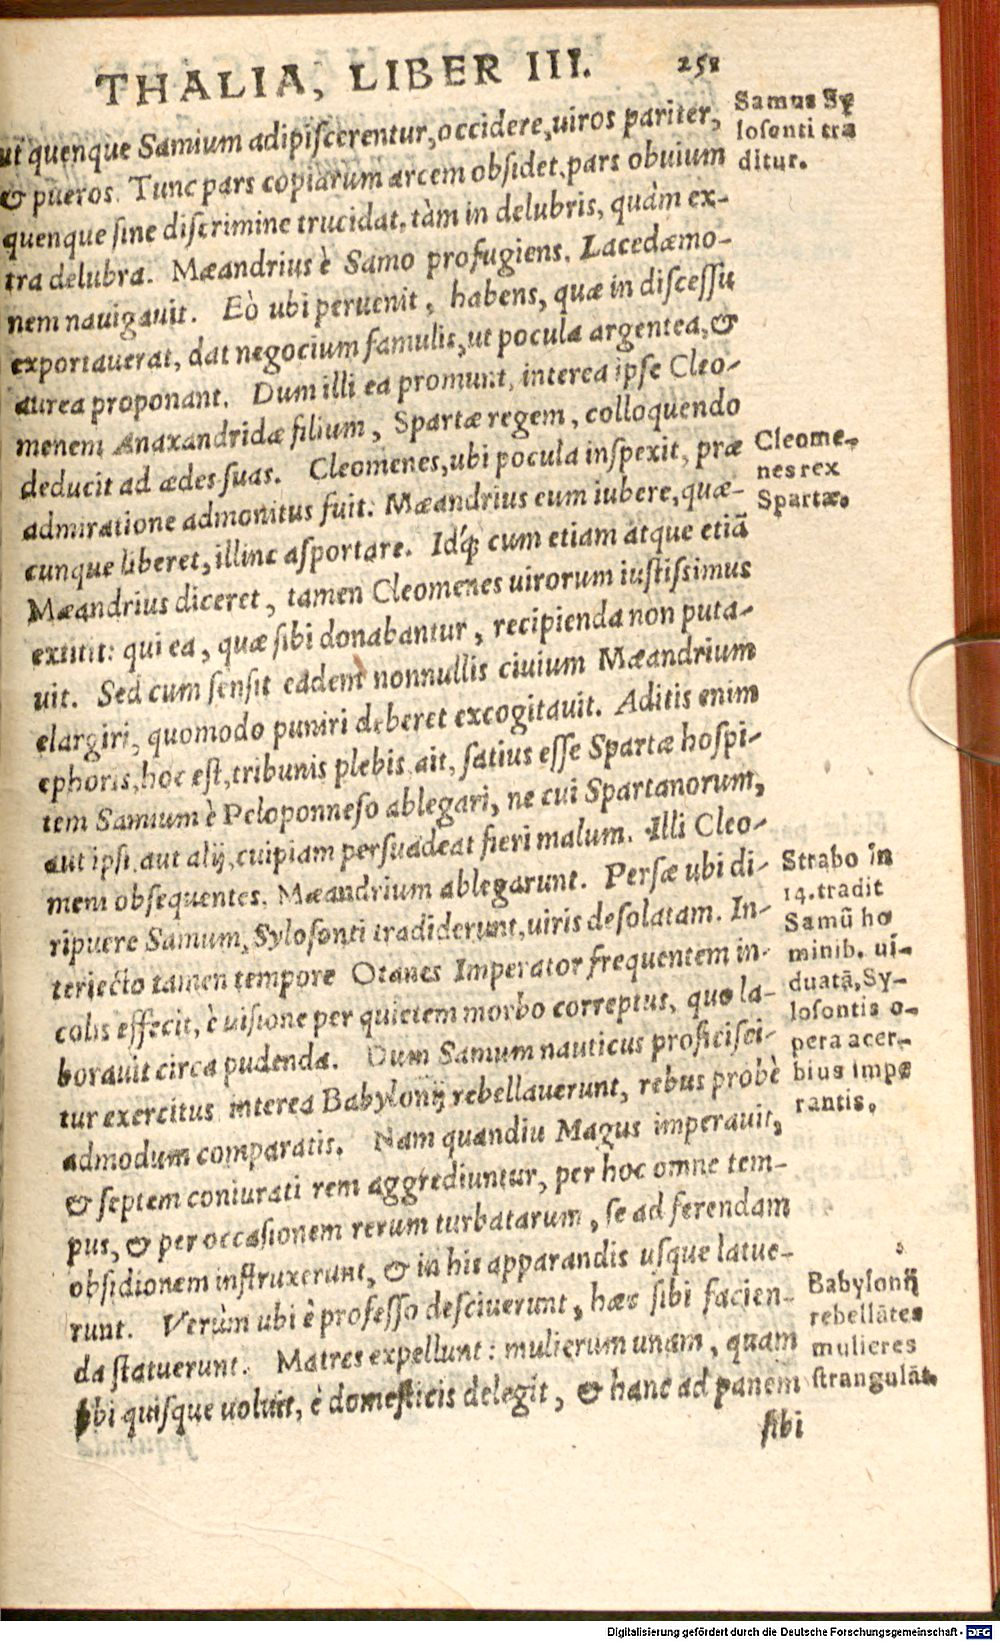 THALIA, LIBER III. 258
ut quenque Samium adipiſcerentur, occidere, uiros pariter,
& pueros. Tunc pars copiarum arcem obſidet, pars obuium
quenque ſine diſcrimine trucidat, tàm in delubris, quàm ex-
tra delubra. Mæandrius è Samo profugiens, Lacedæmo-
nem nauigauit. Eò ubi peruenit, habens, quæ in diſceſſu
exportauerat, dat negocium famulis, ut pocula argentea, &
aurea proponant. Dum illi ea promunt, interea ipſe Cleo-
menem Anaxandridæ filium, Spartæ regem, colloquendo
deducit ad ædes ſuas. Cleomenes, ubi pocula inſpexit, præ
admiratione admonitus fuit. Mæandrius eum iubere, quæ-
cunque liberet, illinc aſportare. Idq́; cum etiam atque etiā
Mæandrius diceret, tamen Cleomenes uirorum iuſtiſsimus
extitit: qui ea, quæ ſibi donabantur, recipienda non puta-
uit. Sed cum ſenſit eadem nonnullis ciuium Mæandrium
elargiri, quomodo puniri deberet excogitauit. Aditis enim
ephoris, hoc eſt, tribunis plebis, ait, ſatius eſſe Spartæ hoſpi-
tem Samium è Peloponneſo ablegari, ne cui Spartanorum,
aut ipſi, aut alij, cuipiam perſuadeat fieri malum. Illi Cleo-
meni obſequentes, Mæandrium ablegarunt. Perſæ ubi di-
ripuere Samum, Syloſonti tradiderunt, uiris deſolatam. In-
teriecto tamen tempore Otanes Imperator frequentem in-
colis effecit, è uiſione per quietem morbo correptus, quo la-
borauit circa pudenda. Dum Samum nauticus proficiſci-
tur exercitus, interea Babylonij rebellauerunt, rebus probè
admodum comparatis. Nam quandiu Magus imperauit,
& ſeptem coniurati rem aggrediuntur, per hoc omne tem-
pus, & per occaſionem rerum turbatarum, ſe ad ferendam
obſidionem inſtruxerunt, & in his apparandis uſque latue-
runt. Verùm ubi è profeſſo deſciuerunt, hæc ſibi facien-
da ſtatuerunt. Matres expellunt: mulierum unam, quam
ſibi quiſque uoluit, è domeſticis delegit, & hanc ad panem
ſibi
Samus Sy
loſonti tra
ditur.
Cleome-
nes rex
Spartæ.
Strabo in
14. tradit
Samū ho
minib. ui-
duatā, Sy-
loſontis o-
pera acer-
bius impe
rantis.
Babylonij
rebellātes
mulieres
ſtrangulāt.
Digitalisierung gefördert durch die Deutsche Forschungsgemeinschaft - DFG